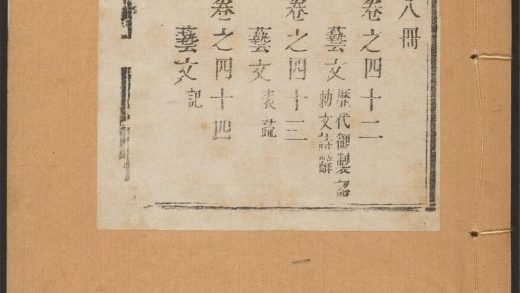 八冊
卷之四十二
藝文
歷代御製
勅文詩辭
卷之四十三
藝文 表疏
卷之四十四
藝文 記